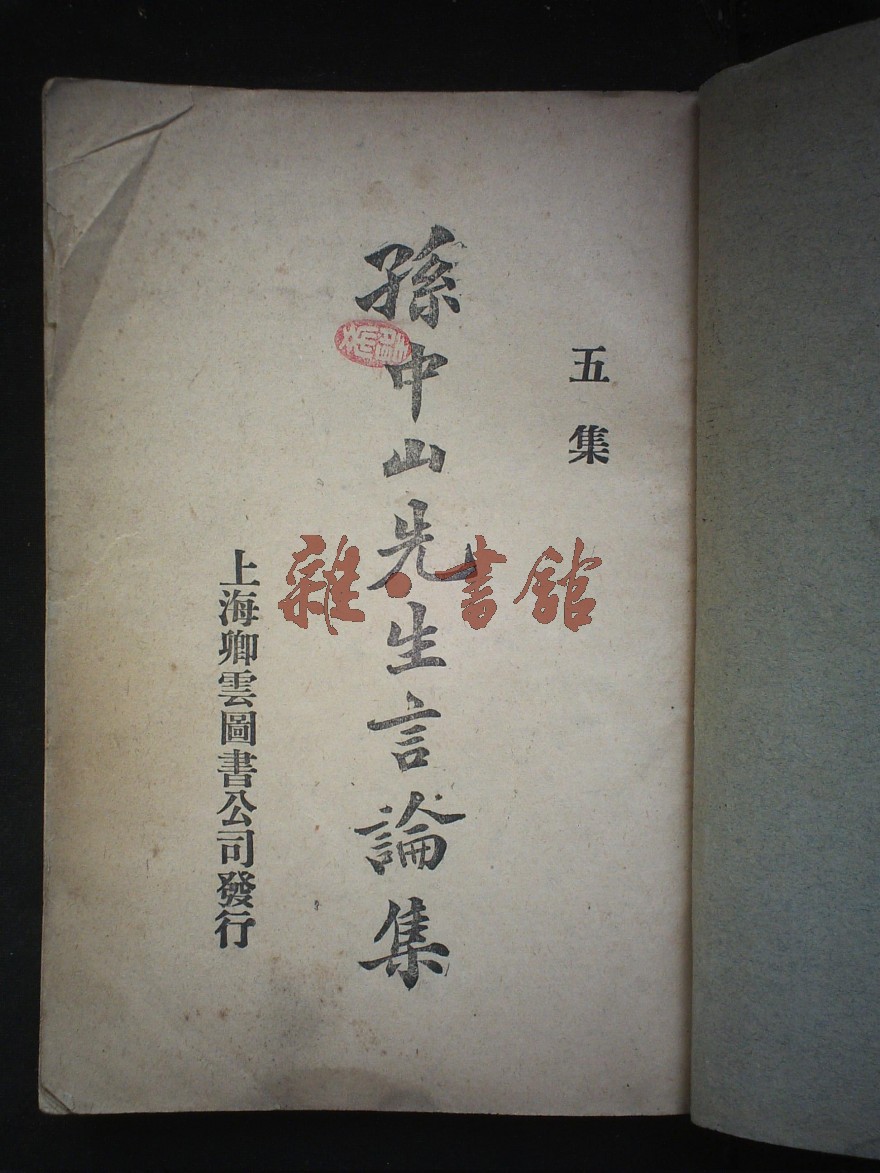 五集
孫中山先生言論集
上海卿雲圖書公司發行
雜·書館